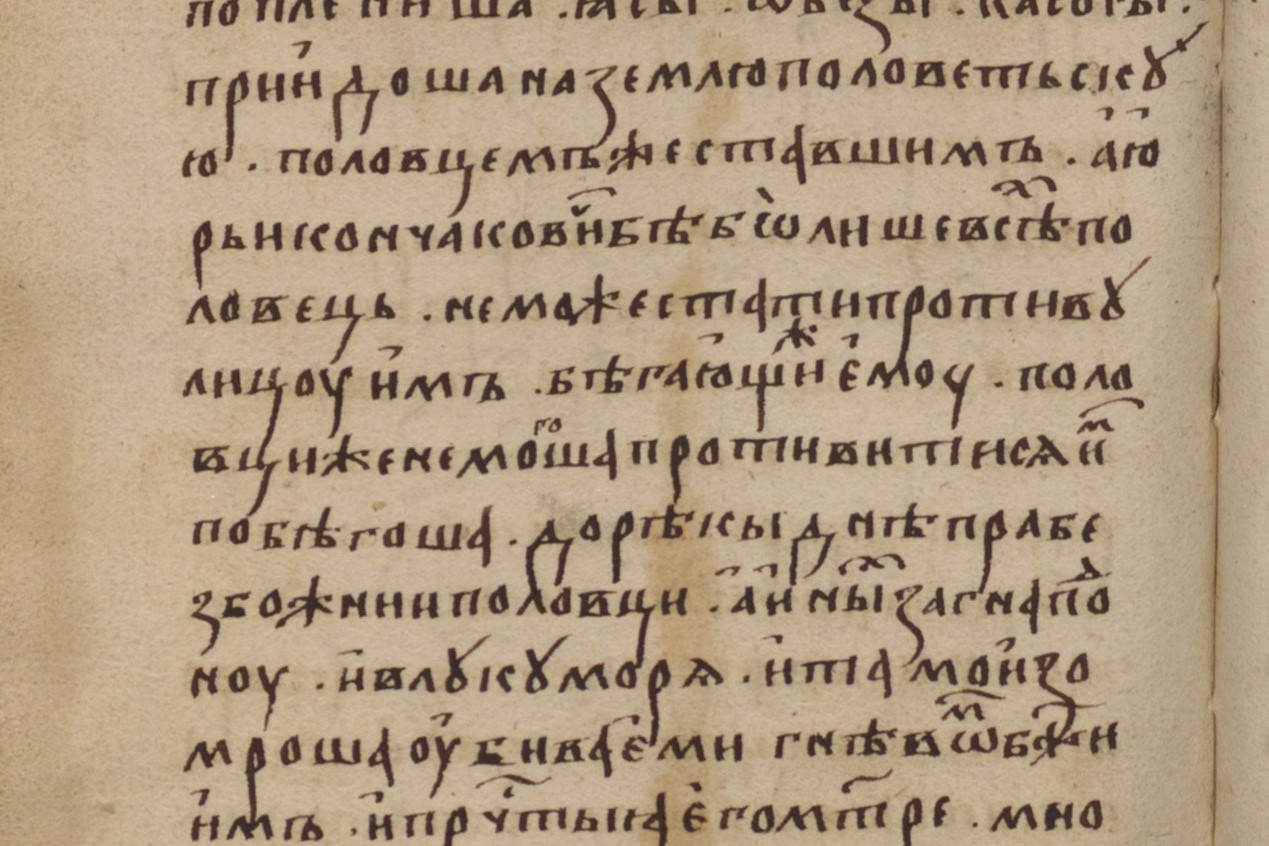 поплениша . ꙗсы . ѡбезы . касогы .
прїи́доша на землю половетьскꙋ
ю . половцемъ же ставшимъ . а́ ю҆
рьи кончакови́ⷱ бѣ бо̀лишевсⷯѣ по
ловець . неможе стати противꙋ
лицоу и҆мъ . бѣгаю́щиⷤ є҆моу . поло
вци же немогоⷲ҇ша противитисѧ иⷨ҇
побѣгоша . дорѣкы днѣпра бе
збожнии половци . а҆ и҆ныⷯ загнапоⷣ
ноу . и҆влꙋкꙋморѧ . и҆тамо и҆зо
мроша оу҆биваеми гнѣвѡⷨ бж҃и
имъ . и҆прⷱ҇тыꙗ є҆го мт҃ре . мно